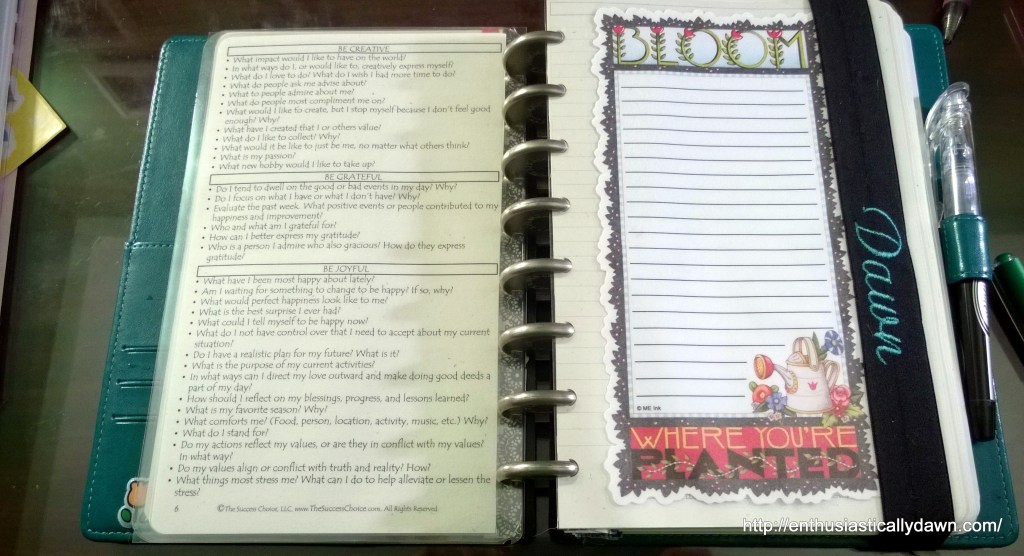 BE CREATIVE
• What impact would I like to have on the world?
• In what ways do I, or would like to, creatively express myself?
• What do I love to do? What do I wish I had more time to do?
• What do people ask me advise about?
• What to people admire about me?
• What do people most compliment me on?
• What would I like to create, but I stop myself because I don't feel good
enough? Why?
• What have I created that I or others value?
• What do I like to collect? Why?
• What would it be like to just be me, no matter what others think?
• What is my passion?
• What new hobby would I like to take up?
BE GRATEFUL
• Do I tend to dwell on the good or bad events in my day? Why?
• Do I focus on what I have or what I don't have? Why?
• Evaluate the past week. What positive events or people contributed to my
happiness and improvement?
• Who and what am I grateful for?
• How can I better express my gratitude?
• Who is a person I admire who also gracious? How do they express
gratitude?
BE JOYFUL
• What have I been most happy about lately?
• Am I waiting for something to change to be happy? If so, why?
• What would perfect happiness look like to me?
• What is the best surprise I ever had?
• What could I tell myself to be happy now?
• What do I not have control over that I need to accept about my current
situation?
• Do I have a realistic plan for my future? What is it?
• What is the purpose of my current activities?
• In what ways can I direct my love outward and make doing good deeds a
part of my day?
• How should I reflect on my blessings, progress, and lessons learned?
• What is my favorite season? Why?
• What comforts me? (Food, person, location, activity, music, etc.) Why?
• What do I stand for?
• Do my actions reflect my values, or are they in conflict with my values?
In what way?
• Do my values align or conflict with truth and reality? How?
• What things most stress me? What can I do to help alleviate or lessen the
stress?
6 ©The Success Choice, LLC. www.TheSuccessChoice.com. All Rights Reserved.
BLOOM
© ME Ink
WHERE YOU'RE
PLANTED
Dawn
http://enthusiasticallydawn.com/